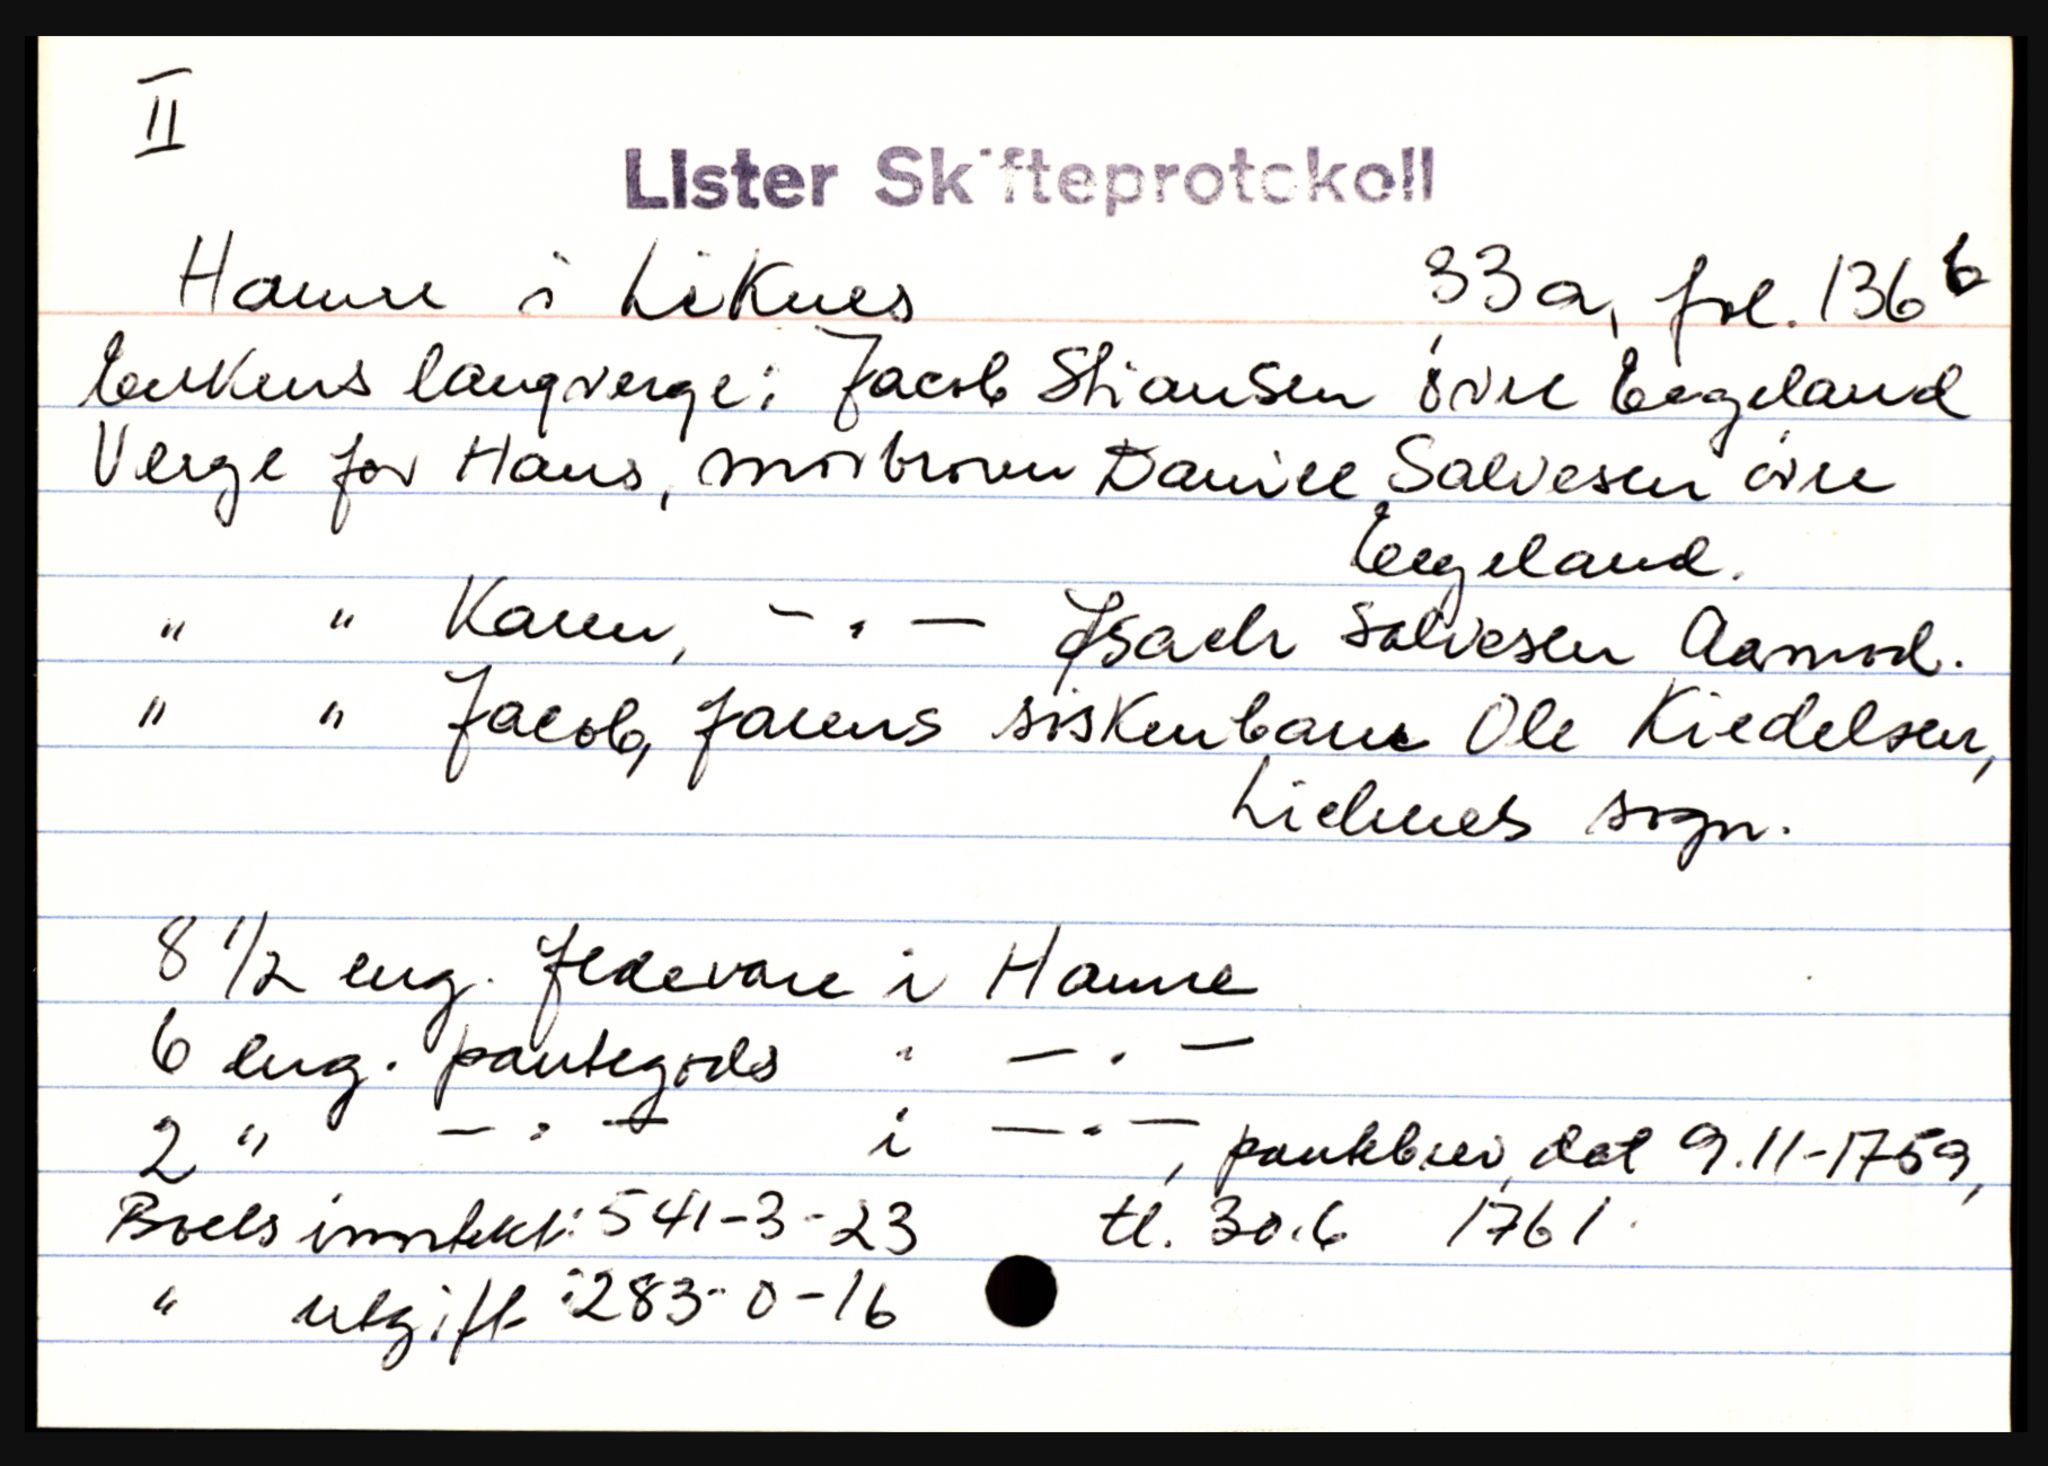 II
Lister Skifteprotokoll
Hamre i Liknes 33a, fol. 136 b
Enkens laugverge: Jacob Stiansen övre Eegeland
Verge for Hans, morbroren Daniel Salvesen övre
Eegeland.
" " Karen, - " - Isach Salvesen Aamod.
" " Jacob, farens siskenbarn Ole Kiedelsen,
Lichnes sogn.
8 1/2 eng. fedevare i Hamre
6 eng. pantegods i - " -
2 " - " - i - " -, pantebrev dat 9.11-1759,
Boets inntekt: 541-3-23 tl. 30.6 1761.
" utgift: 283-0-16